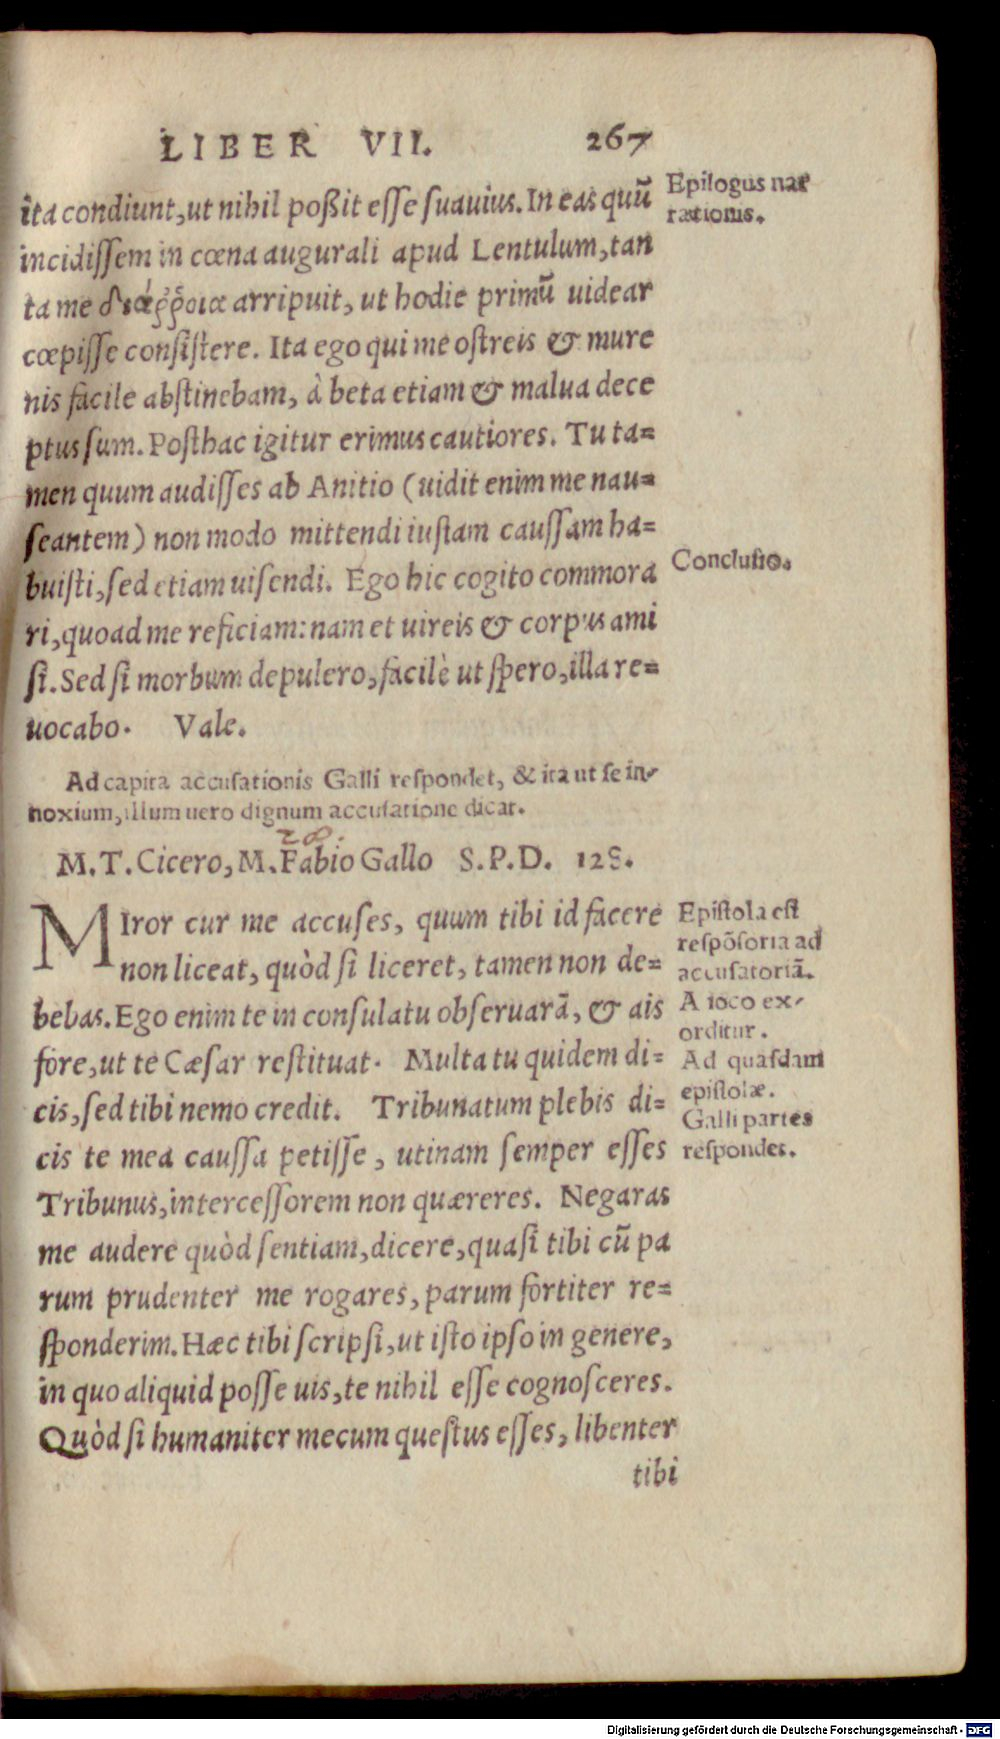 LIBER VII. 267
ita condiunt, ut nihil poßit esse suauius. In eas quũ
incidissem in cœna augurali apud Lentulum, tan
ta me διάῤῥοια arripuit, ut hodie primũ uidear
cœpisse consistere. Ita ego qui me ostreis & mure
nis facile abstinebam, à beta etiam & malua dece
ptus sum. Posthac igitur erimus cautiores. Tu ta=
men quum audisses ab Anitio (uidit enim me nau=
seantem) non modo mittendi iustam caussam ha=
buisti, sed etiam uisendi. Ego hic cogito commora
ri, quoad me reficiam: nam et uireis & corpus ami
si. Sed si morbum depulero, facilè ut spero, illa re=
uocabo. Vale.
Epilogus nar
rationis.
Conclusio.
Ad capita accusationis Galli respondet, & ita ut se in-
noxium, illum uero dignum accusatione dicat.
28.
M. T. Cicero, M. Fabio Gallo S. P. D. 128.
MIror cur me accuses, quum tibi id facere
non liceat, quòd si liceret, tamen non de=
bebas. Ego enim te in consulatu obseruarã, & ais
fore, ut te Cæsar restituat. Multa tu quidem di=
cis, sed tibi nemo credit. Tribunatum plebis di=
cis te mea caussa petisse, utinam semper esses
Tribunus, intercessorem non quæreres. Negaras
me audere quòd sentiam, dicere, quasi tibi cũ pa
rum prudenter me rogares, parum fortiter re=
sponderim. Hæc tibi scripsi, ut isto ipso in genere,
in quo aliquid posse uis, te nihil esse cognosceres.
Quòd si humaniter mecum questus esses, libenter
tibi
Epistola est
respõsoria ad
accusatoriã.
A ioco ex-
orditur.
Ad quasdam
epistolæ.
Galli partes
respondet.
Digitalisierung gefördert durch die Deutsche Forschungsgemeinschaft - DFG